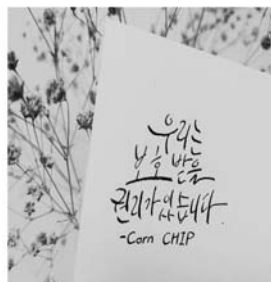 우리는
보호 받을
권리가 있습니다.
-Corn CHIP